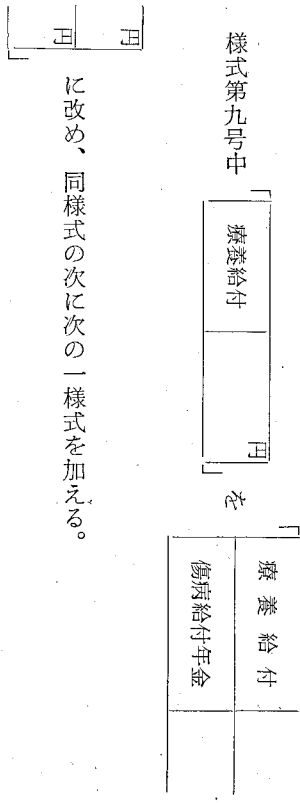 様式第九号中「療養給付 円」を「療養給付
傷病給付年金
円
円」に改め、同様式の次に次の一様式を加える。